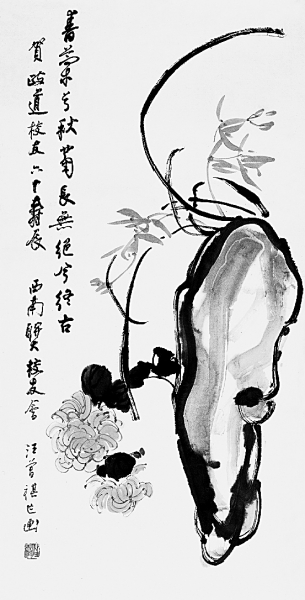 春蘭兮秋菊長無絕兮終古
賀政道校友六十壽辰 西南联大校友會 汪曾祺作画